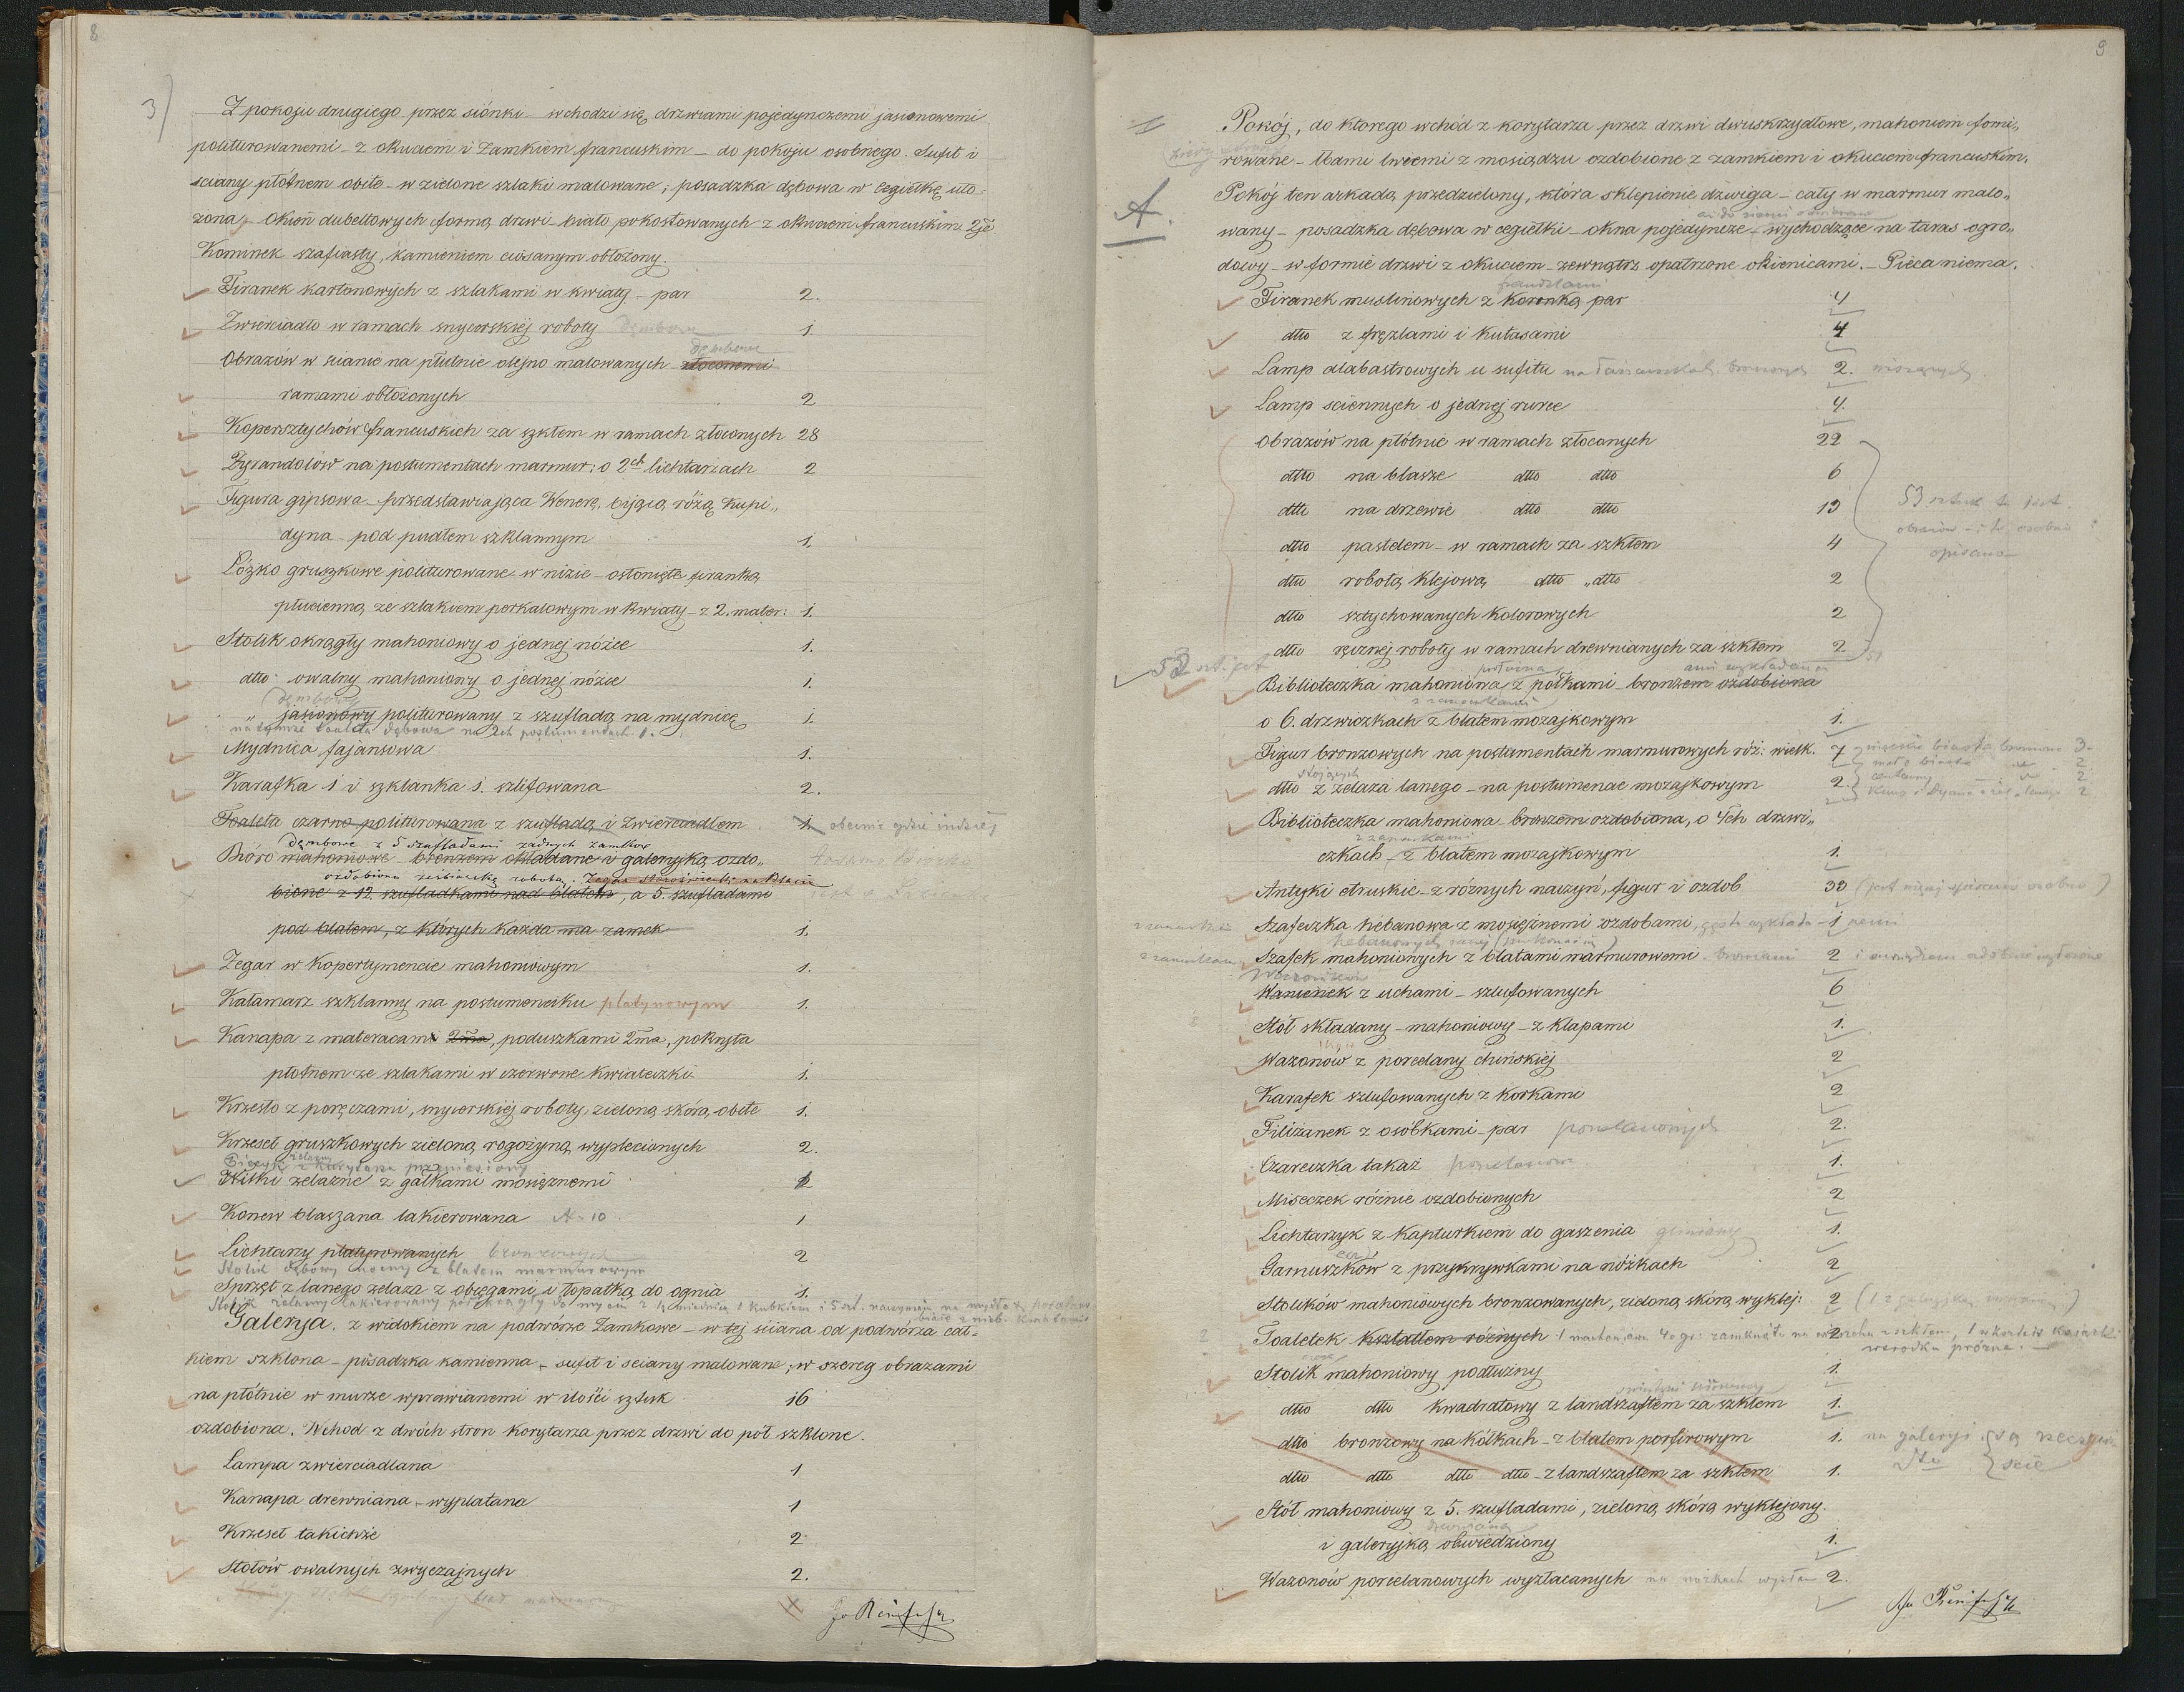 8
3)
Z pokoju drugiego przez siónki wchodzi się drzwiami pojedynczemi jasionowemi
politturowanemi – z okuciem i Zamkiem francuskim – do pokoju osobnego. Sufit i
sciany płótnem obite – w zielone szlaki malowane; posadzka dębowa w cegiełkę uło-
żona, – Okien dubeltowych formą drzwi – biało pokostowanych – z okuciem francuskim. 2je
Kominek szafiasty, kamieniem ciosanym obłożony.
Firanek kartonowych z szlakami w kwiaty – par 2.
Zwierciadło w ramach snycerskiej roboty dembowe 1.
dembowe
Obrazów w scianie na płutnie olejno malowanych – złoconemi
ramami obłożonych 2
Kopersztychów francuskich za szkłem w ramach złoconych 28
Żyrandolów na postumentach marmur: o 2ch lichtarzach 2
Figura gipsowa – przedstawiająca Wenerę, bijącą różą Kupi„
dyna – pod pudłem szklannym 1.
Łóżko gruszkowe politurowane – w nizie – osłonięte firanką
płucienną ze szlakiem perkalowym w kwiaty – z 2. mater: 1.
Stolik okrągły mahoniowy o jednej nóżce 1.
dtto owalny mahoniowy o jednej nóżce 1.
dembowy
„ jasionowy politurowany z szufladą na mydnicę 1.
na tymże toaleta dębowa na 2ch postumentach 1.
Mydnica fajansowa 1.
Karafka 1 i szklanka 1. szlifowana 2.
Toaleta czarno politurowana z szufladą i Zwierciadłem 1. obecnie gdzie indziej
Dembowe z 5 szufladami żadnych zamków
Bióro mahoniowe – bronzem okładane w galeryjką ozdo„
ozdobione rzeźbiarską robotą.
bione – z 12. szufladkami nad blatem, a 5. szufladami
pod blatem, z których każda ma zamek 1.
Zegar w Kopertymencie mahoniowym 1.
Kałamarz szklanny na postumenciku platynowym 1.
Kanapa z materacami 2ma, poduszkami 2ma, pokryta
płótnem ze szlakami w czerwone kwiateczki 1.
Krzesło z poręczami, snycerskiej roboty, zieloną skórą obite 1.
Krzeseł gruszkowych zieloną rogożyną wyplecionych 2.
Piecyk żelazny z kurytarza przeniesiony
Wilki żelazne z gałkami mosiężnemi 2
Konew blaszana lakierowana A-10 1
Lichtarzy platyrowanych bronzowych 2
Stolik dębowy nocny z blatem marmurowym
Sprzęt z lanego żelaza z obcęgami i łopatką do ognia 1.
Stolik żelazny lakierowany półokrągły do mycia z 1 miednicą 1 kubkiem i 5 szt. naczyniem na mydło z porcelany
białe z nieb. kwiatami
Galerya. z widokiem na podwórze Zamkowe – w tej sciana od podwórza cał-
kiem szklona – posadzka kamienna – sufit i sciany malowane; w szereg obrazami
na płótnie w murze wprawianemi w ilości sztuk 16
ozdobiona. Wchod z dwóch stron korytarza przez drzwi do pół szklone.
Lampa zwierciadlana 1
Kanapa drewniana – wyplatana 1
Krzeseł takichże 2
Stołów owalnych zwyczajnych 2.
9
A.
Pokój, do ktorego wchód z korytarza przez drzwi dwuskrzydłowe, mahoniem forni„
rowane – łbami lwiemi z mosiądzu ozdobione z zamkiem i okuciem francuskim.
Pokój ten arkadą przedzielony, która sklepienie dźwiga – cały w marmur malo„
wany – posadzka dębowa w cegiełki – okna pojedyncze – wychodzące na taras ogro„
dowy – w formie drzwi z okuciem – zewnątrz opatrzone okienicami. – Pieca niema.
Firanek muslinowych z koronką par 4
dtto z fręzlami i kutasami 4
Lamp alabastrowych u sufitu na łańcuszkach bronzowych 2. wiszących
Lamp sciennych o jednej rurce 4.
Obrazów na płótnie w ramach złoconych 22
dtto na blasze dtto dtto 6
dtto na drzewie dtto dtto 13
53 sztuk tu jest
obrazów – i te osobno
opisano
dtto pastelem – w ramach za szkłem 4
dtto robotą klejową dtto „dtto 2
dtto sztychowanych kolorowych 2
dtto ręcznej roboty w ramach drewnianych za szkłem 2
53 szt. jest
Biblioteczka mahoniowa z półkami – bronzem ozdobiona
z zameczkami
o 6. drzwiczkach z blatem mozajkowym 1.
Figur bronzowych na postamentach marmurowych róż: wielk. 7
stojących
dtto z żelaza lanego – na postumencie mozajkowym 2.
Biblioteczka mahoniowa – bronzem ozdobiona, o 4ch drzwi„
z zameczkami
czkach – z blatem mozajkowym 1.
Antyki etruskie – z różnych naczyń, figur i ozdob 33 (jest niżej spisanie osobno)
Szafeczka hebanowa z mosiężnemi ozdobami, 1
Szafek mahoniowych z blatami marmurowemi 2
Wazoników
Wanienek z uchami – szlufowanych 6
Stół składany – mahoniowy – z klapami 1.
Wazonów z porcelany chińskiej 2
Karafek szlufowanych z korkami 2
Filiżanek z osóbkami – par porcelanowych 2.
Czareczka takaż porcelanowa 1.
Miseczek różnie ozdobionych 2
Lichtarzyk z kapturkiem do gaszenia gliniany 1.
Garnuszków z przykrywkami na nóżkach 2
Stolików mahoniowych bronzowanych, zieloną skórą wyklej: 2
Toaletek kształtem różnych 2
Stolik mahoniowy podłużny 1.
dtto dtto kwadratowy z landszaftem za szkłem 1.
dtto bronzowy na kółkach – z blatem porfirowym 1. na galeryi są rzeczywi
dtto dtto dtto dtto – z landszaftem za szkłem 1. dto scie
Stół mahoniowy z 5. szufladami, zieloną skórą wyklejony
drewnianą
i galeryjką obwiedziony 1.
Wazonów porcelanowych wyzłacanych na nóżkach 2.